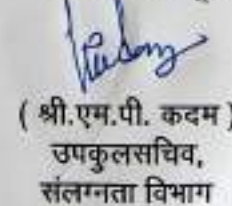 ( श्री.एम.पी. कदम )
उपकुलसचिव,
संलग्नता विभाग